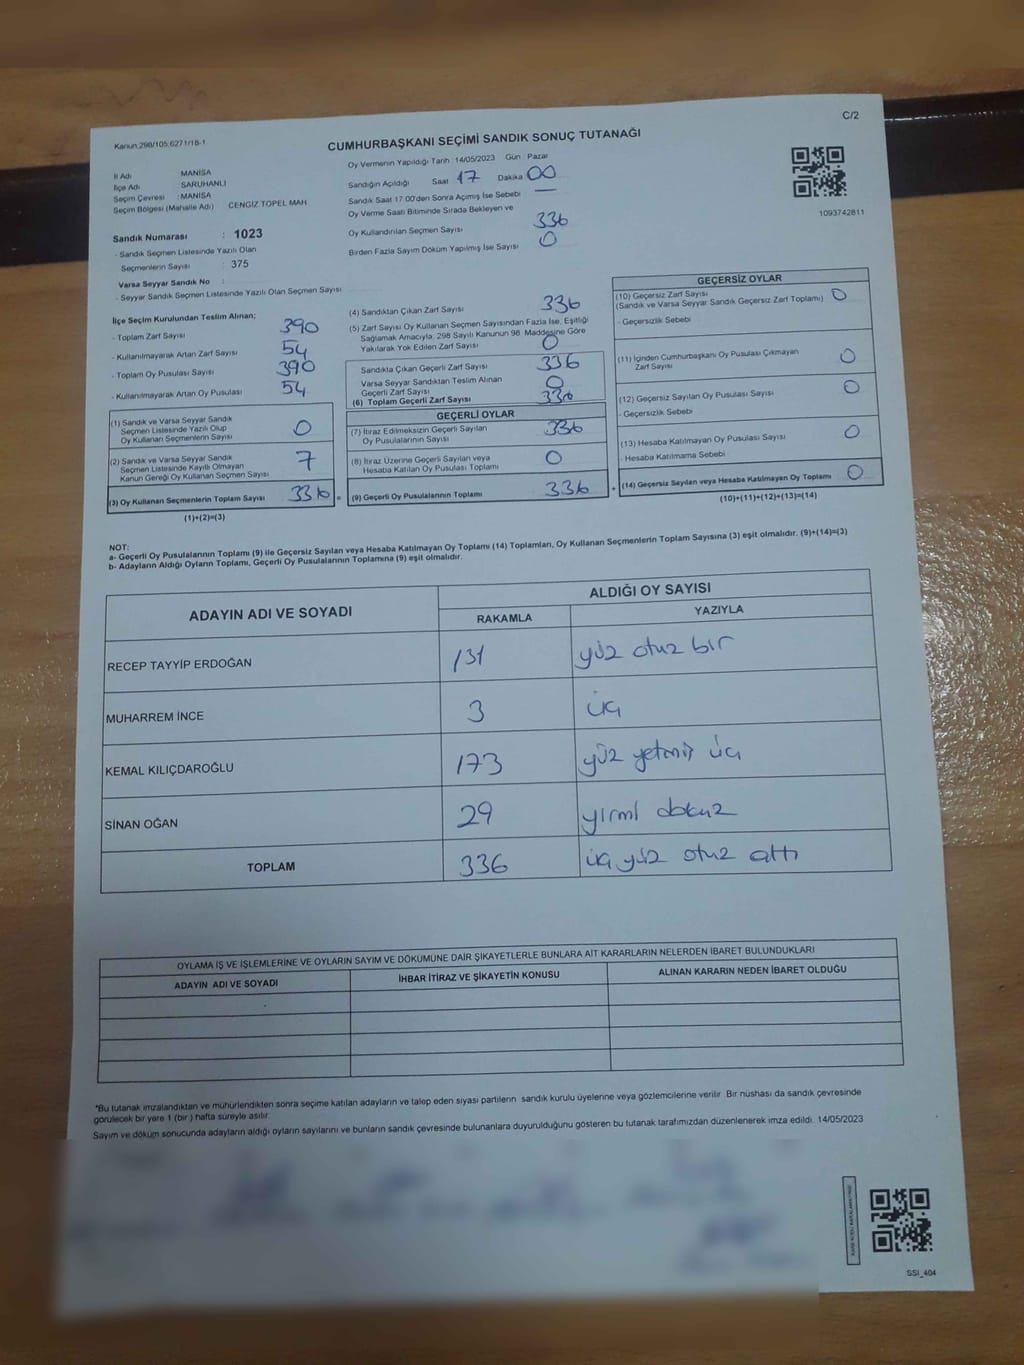 C/2
Kanun:298/105,6271/18-1
CUMHURBAŞKANI SEÇİMİ SANDIK SONUÇ TUTANAĞI
İl Adı MANİSA
İlçe Adı SARUHANLI
Seçim Çevresi : MANİSA
Seçim Bölgesi (Mahalle Adı) CENGİZ TOPEL MAH
Sandık Numarası : 1023
- Sandık Seçmen Listesinde Yazılı Olan
Seçmenlerin Sayısı : 375
Varsa Seyyar Sandık No :
- Seyyar Sandık Seçmen Listesinde Yazılı Olan Seçmen Sayısı
Oy Vermenin Yapıldığı Tarih 14/05/2023 Gün Pazar
Sandığın Açıldığı Saat 17 Dakika 00
Sandık Saat 17 00'den Sonra Açımış İse Sebebi —
Oy Verme Saati Bitiminde Sırada Bekleyen ve
Oy Kullandırılan Seçmen Sayısı 336
Birden Fazla Sayım Döküm Yapılmış İse Sayısı 0
1093742811
İlçe Seçim Kurulundan Teslim Alınan;
- Toplam Zarf Sayısı 390
- Kullanılmayarak Artan Zarf Sayısı 54
- Toplam Oy Pusulası Sayısı 390
- Kullanılmayarak Artan Oy Pusulası 54
(1) Sandık ve Varsa Seyyar Sandık
Seçmen Listesinde Yazılı Olup
Oy Kullanan Seçmenlerin Sayısı 0
(2) Sandık ve Varsa Seyyar Sandık
Seçmen Listesinde Kayıtlı Olmayan
Kanun Gereği Oy Kullanan Seçmen Sayısı 7
(3) Oy Kullanan Seçmenlerin Toplam Sayısı 336 =
(1)+(2)=(3)
(4) Sandıktan Çıkan Zarf Sayısı 336
(5) Zarf Sayısı Oy Kullanan Seçmen Sayısından Fazla İse, Eşitliği
Sağlamak Amacıyla, 298 Sayılı Kanunun 98. Maddesine Göre
Yakılarak Yok Edilen Zarf Sayısı 0
Sandıkta Çıkan Geçerli Zarf Sayısı 336
Varsa Seyyar Sandıktan Teslim Alınan
Geçerli Zarf Sayısı 0
(6) Toplam Geçerli Zarf Sayısı 336
GEÇERLİ OYLAR
(7) İtiraz Edilmeksizin Geçerli Sayılan
Oy Pusulalarının Sayısı 336
(8) İtiraz Üzerine Geçerli Sayılan veya
Hesaba Katılan Oy Pusulası Toplamı 0
(9) Geçerli Oy Pusulalarının Toplamı 336 +
GEÇERSİZ OYLAR
(10) Geçersiz Zarf Sayısı
(Sandık ve Varsa Seyyar Sandık Geçersiz Zarf Toplamı) 0
- Geçersizlik Sebebi
(11) İçinden Cumhurbaşkanı Oy Pusulası Çıkmayan
Zarf Sayısı 0
(12) Geçersiz Sayılan Oy Pusulası Sayısı 0
- Geçersizlik Sebebi
(13) Hesaba Katılmayan Oy Pusulası Sayısı 0
- Hesaba Katılmama Sebebi
(14) Geçersiz Sayılan veya Hesaba Katılmayan Oy Toplamı 0
(10)+(11)+(12)+(13)=(14)
NOT:
a- Geçerli Oy Pusulalarının Toplamı (9) ile Geçersiz Sayılan veya Hesaba Katılmayan Oy Toplamı (14) Toplamları, Oy Kullanan Seçmenlerin Toplam Sayısına (3) eşit olmalıdır. (9)+(14)=(3)
b- Adayların Aldığı Oyların Toplamı, Geçerli Oy Pusulalarının Toplamına (9) eşit olmalıdır.
ADAYIN ADI VE SOYADI ALDIĞI OY SAYISI
RAKAMLA YAZIYLA
RECEP TAYYİP ERDOĞAN 131 yüz otuz bir
MUHARREM İNCE 3 üç
KEMAL KILIÇDAROĞLU 173 yüz yetmiş üç
SİNAN OĞAN 29 yirmi dokuz
TOPLAM 336 üç yüz otuz altı
OYLAMA İŞ VE İŞLEMLERİNE VE OYLARIN SAYIM VE DÖKÜMÜNE DAİR ŞİKAYETLERLE BUNLARA AİT KARARLARIN NELERDEN İBARET BULUNDUKLARI
ADAYIN ADI VE SOYADI İHBAR İTİRAZ VE ŞİKAYETİN KONUSU ALINAN KARARIN NEDEN İBARET OLDUĞU
*Bu tutanak imzalandıktan ve mühürlendikten sonra seçime katılan adayların ve talep eden siyasi partilerin sandık kurulu üyelerine veya gözlemcilerine verilir. Bir nüshası da sandık çevresinde
görülecek bir yere 1 (bir) hafta süreyle asılır.
Sayım ve döküm sonucunda adayların aldığı oyların sayılarını ve bunların sandık çevresinde bulunanlara duyurulduğunu gösteren bu tutanak tarafımızdan düzenlenerek imza edildi. 14/05/2023
SSİ_404